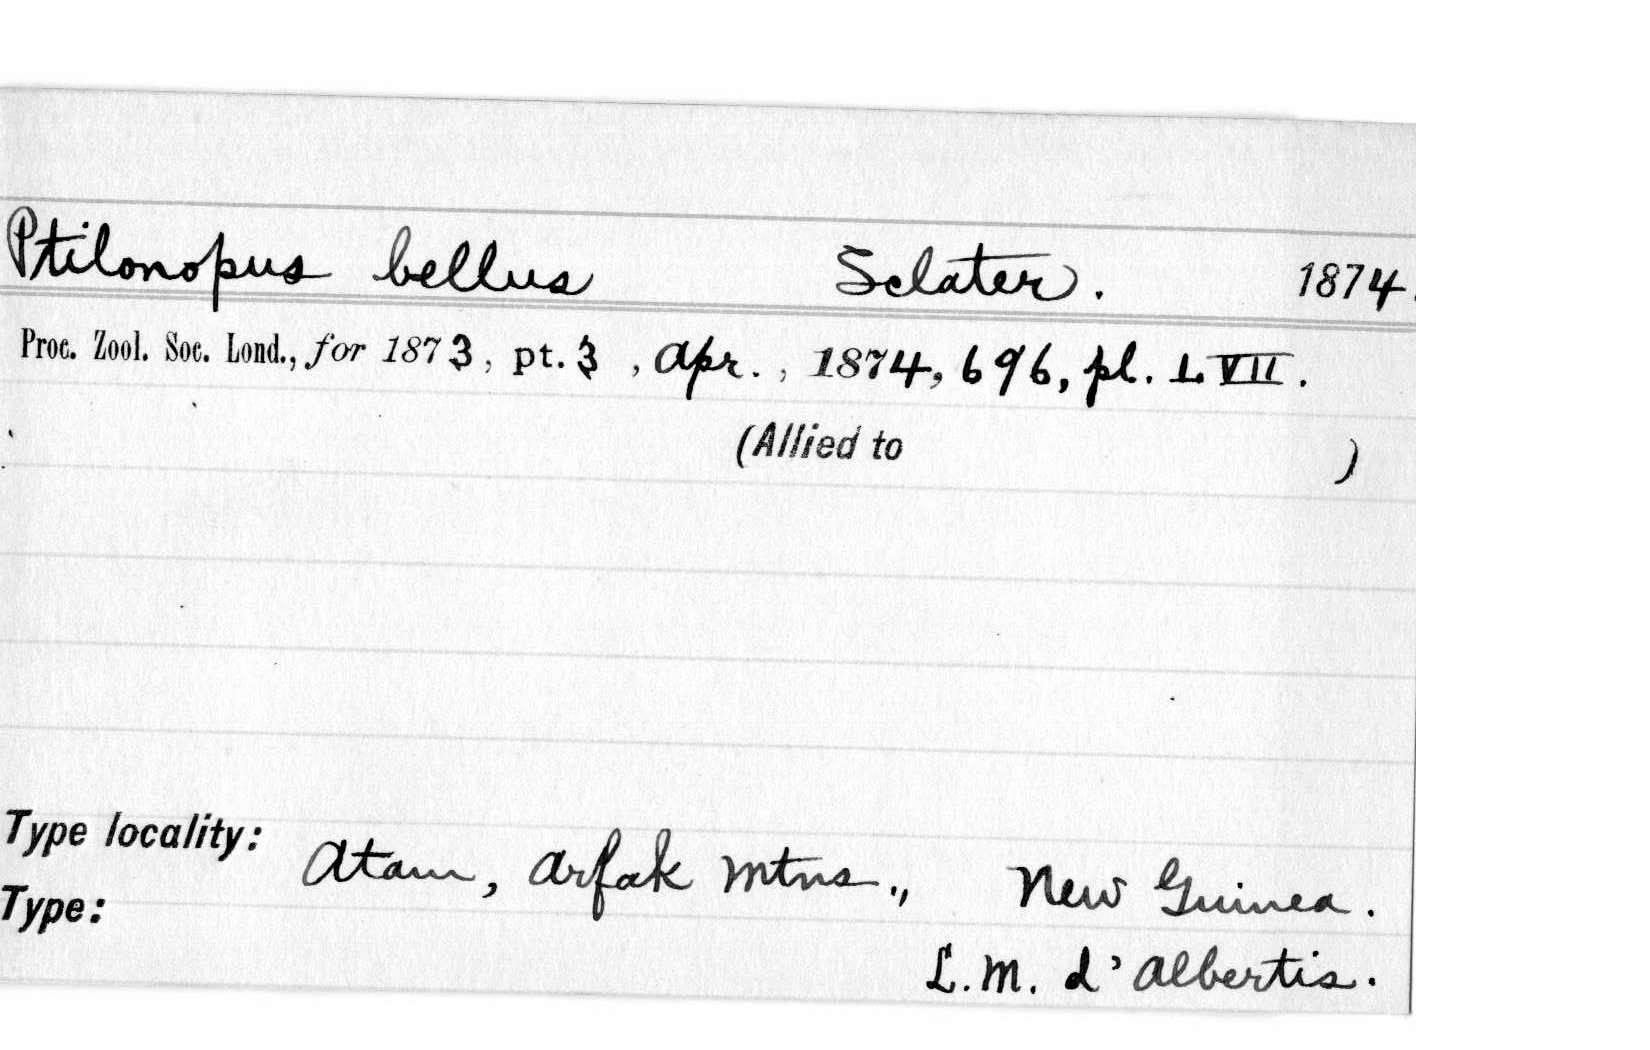 Ptilonopus bellus Sclater. 1874.
Proc. Zool. Soc. Lond., for 1873, pt. 3, Apr., 1874, 696, pl. LVII.
(Allied to )
Type locality: Atam, Arfak Mtns., New Guinea.
Type:
L. M. d'Albertis.